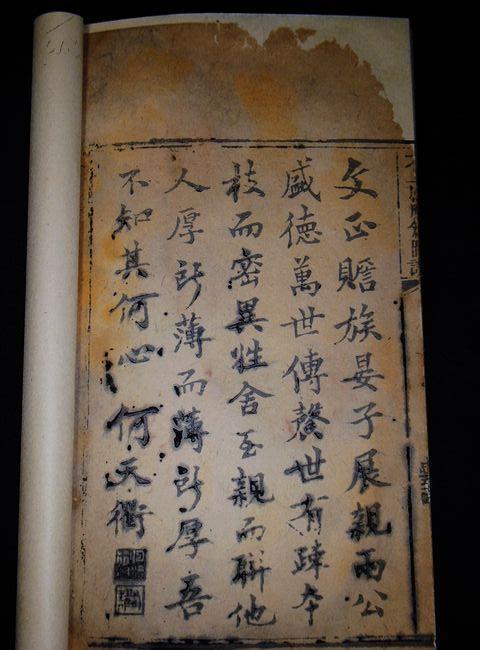 文正贍族晏子展親兩公
盛德萬世傳馨世有踈本
枝而密異姓舍至親而聯他
人厚所薄而薄所厚吾
不知其何心 何天衢